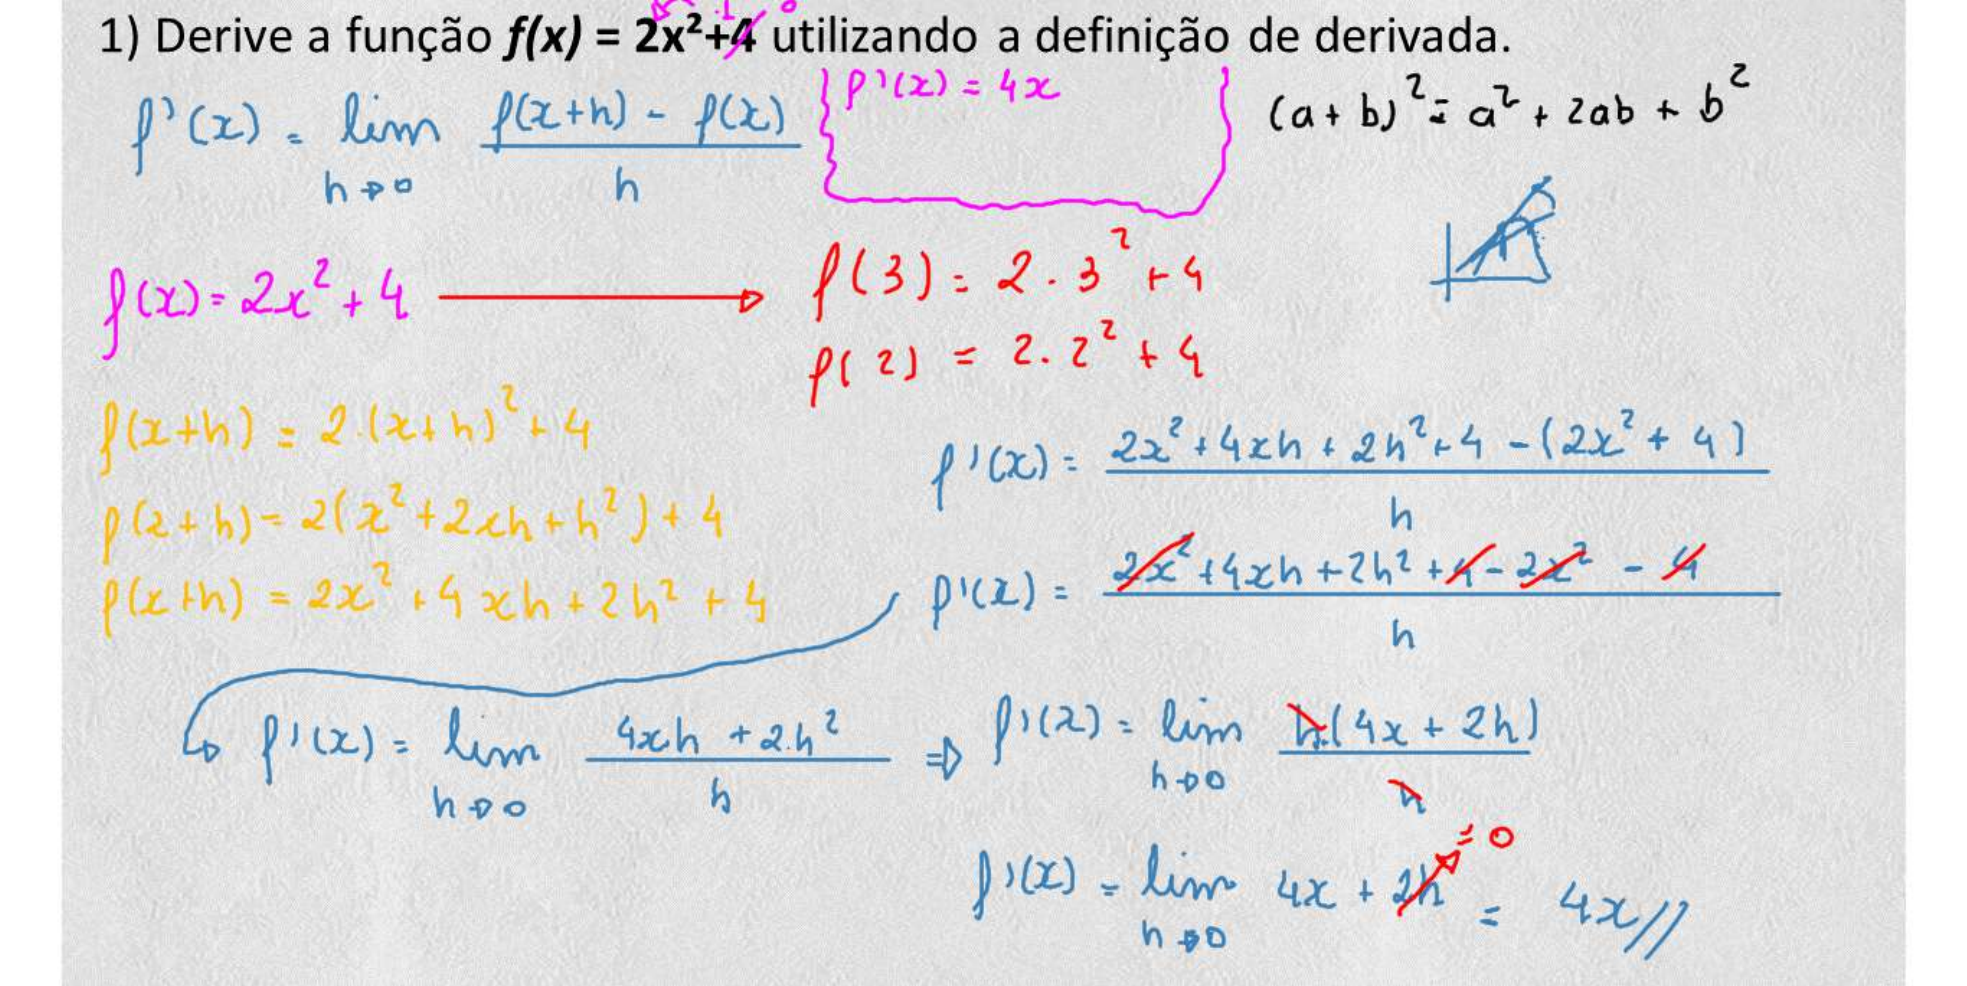 1) Derive a função f(x) = 2x²+4 utilizando a definição de derivada.
.1 0
f'(x) = lim f(x+h) - f(x)
h→0 h
f'(x) = 4x
(a + b)² = a² + 2ab + b²
f(x) = 2x² + 4 → f(3) = 2 . 3² + 4
f(2) = 2 . 2² + 4
f(x+h) = 2.(x+h)² + 4
f(x+h) = 2(x² + 2xh + h²) + 4
f(x+h) = 2x² + 4xh + 2h² + 4
f'(x) = 2x² + 4xh + 2h² + 4 - (2x² + 4)
h
f'(x) = 2x² + 4xh + 2h² + 4 - 2x² - 4
h
f'(x) = lim 4xh + 2.h²
h→0 h
⇒ f'(x) = lim h.(4x + 2h)
h→0 h
f'(x) = lim 4x + 2h = 4x//
h→0
= 0